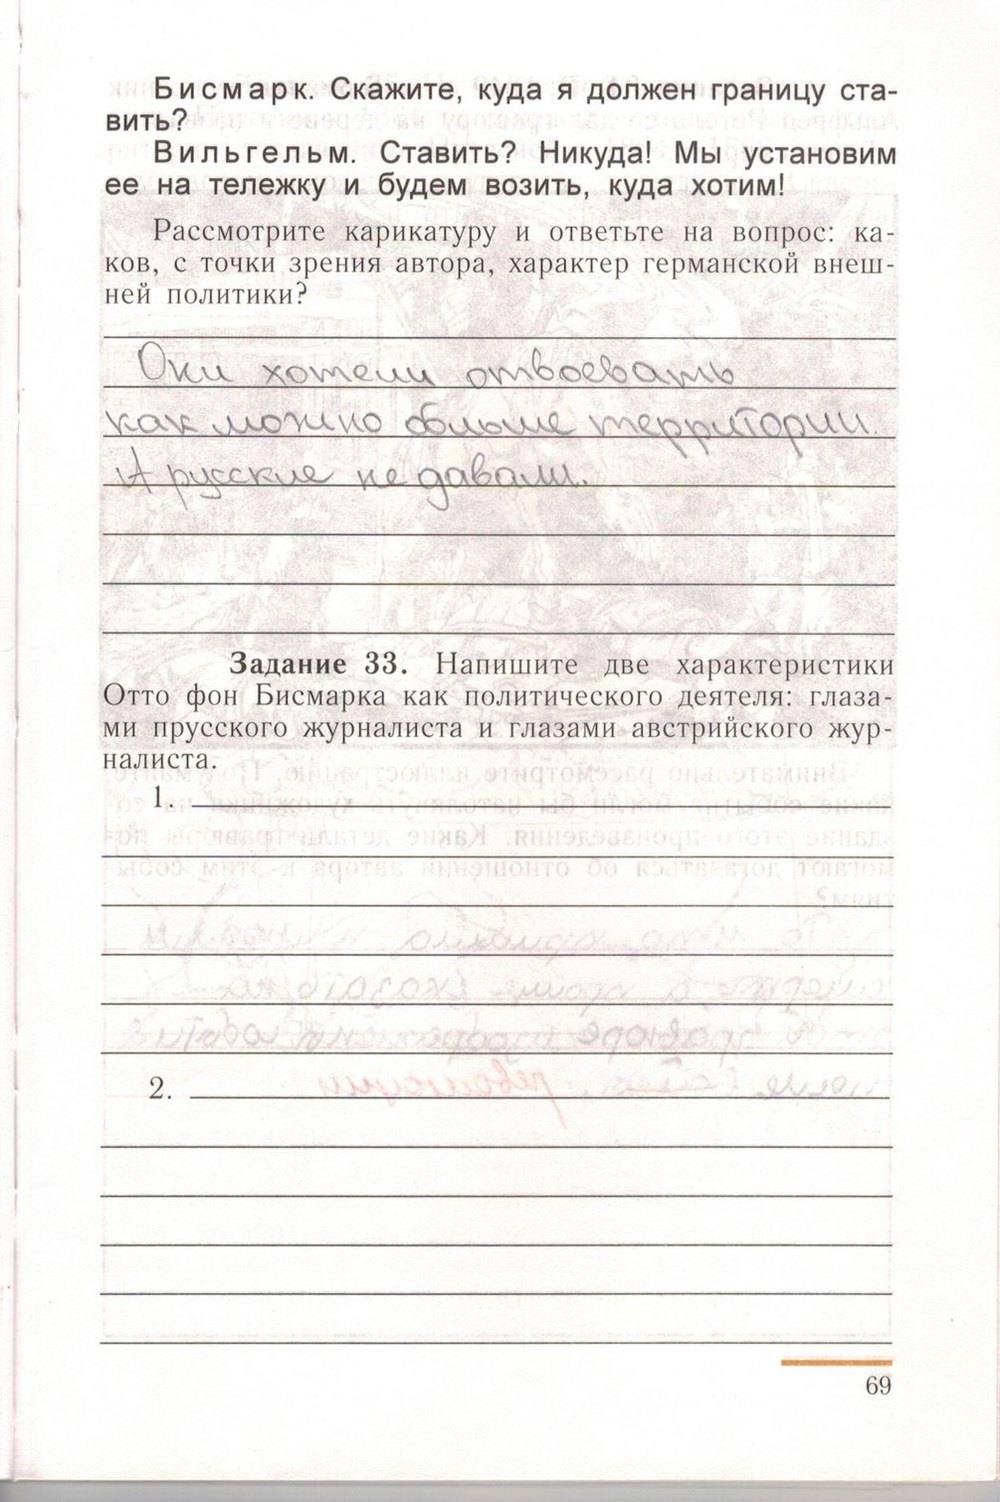 Бисмарк. Скажите, куда я должен границу ста-
вить?
Вильгельм. Ставить? Никуда! Мы установим
ее на тележку и будем возить, куда хотим!
Рассмотрите карикатуру и ответьте на вопрос: ка-
ков, с точки зрения автора, характер германской внеш-
ней политики?
Они хотели отвоевать
как можно больше территории.
А русские не давали.
Задание 33. Напишите две характеристики
Отто фон Бисмарка как политического деятеля: глаза-
ми прусского журналиста и глазами австрийского жур-
налиста.
1.
2.
69